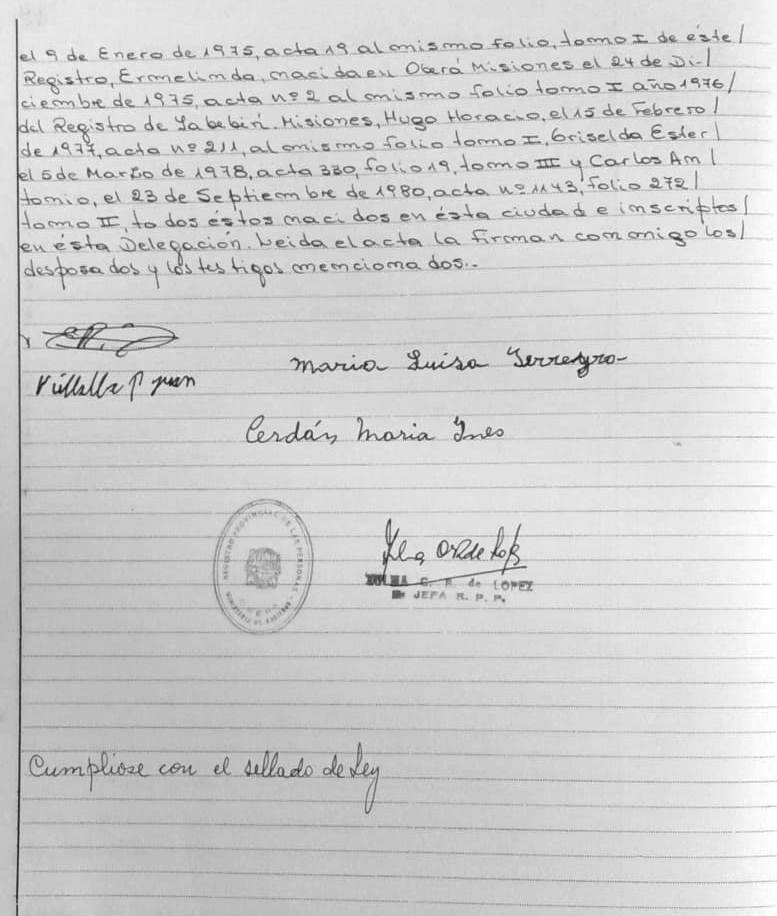 el 9 de Enero de 1975, acta 19 al mismo folio, tomo I de éste/
Registro, Ermelinda, nacida en Oberá Misiones el 24 de Di-/
ciembre de 1975, acta nº 2 al mismo folio tomo I año 1976/
del Registro de Yabebirí. Misiones, Hugo Horacio, el 15 de Febrero/
de 1977, acta nº 211, al mismo folio tomo I, Griselda Ester/
el 5 de Marzo de 1978, acta 330, folio 19, tomo III y Carlos An/
tonio, el 23 de Septiembre de 1980, acta nº 1143, folio 272/
tomo II, todos éstos nacidos en ésta ciudad e inscriptos/
en ésta Delegacion. Leida el acta la firman conmigo los/
desposados y los testigos mencionados..
Maria Luisa Ferreyro
Villalla Juan
Cerdán Maria Ines
REGISTRO PROVINCIAL DE LAS PERSONAS
de LOPEZ
JEFA R. P. P.
Cumpliose con el sellado de Ley